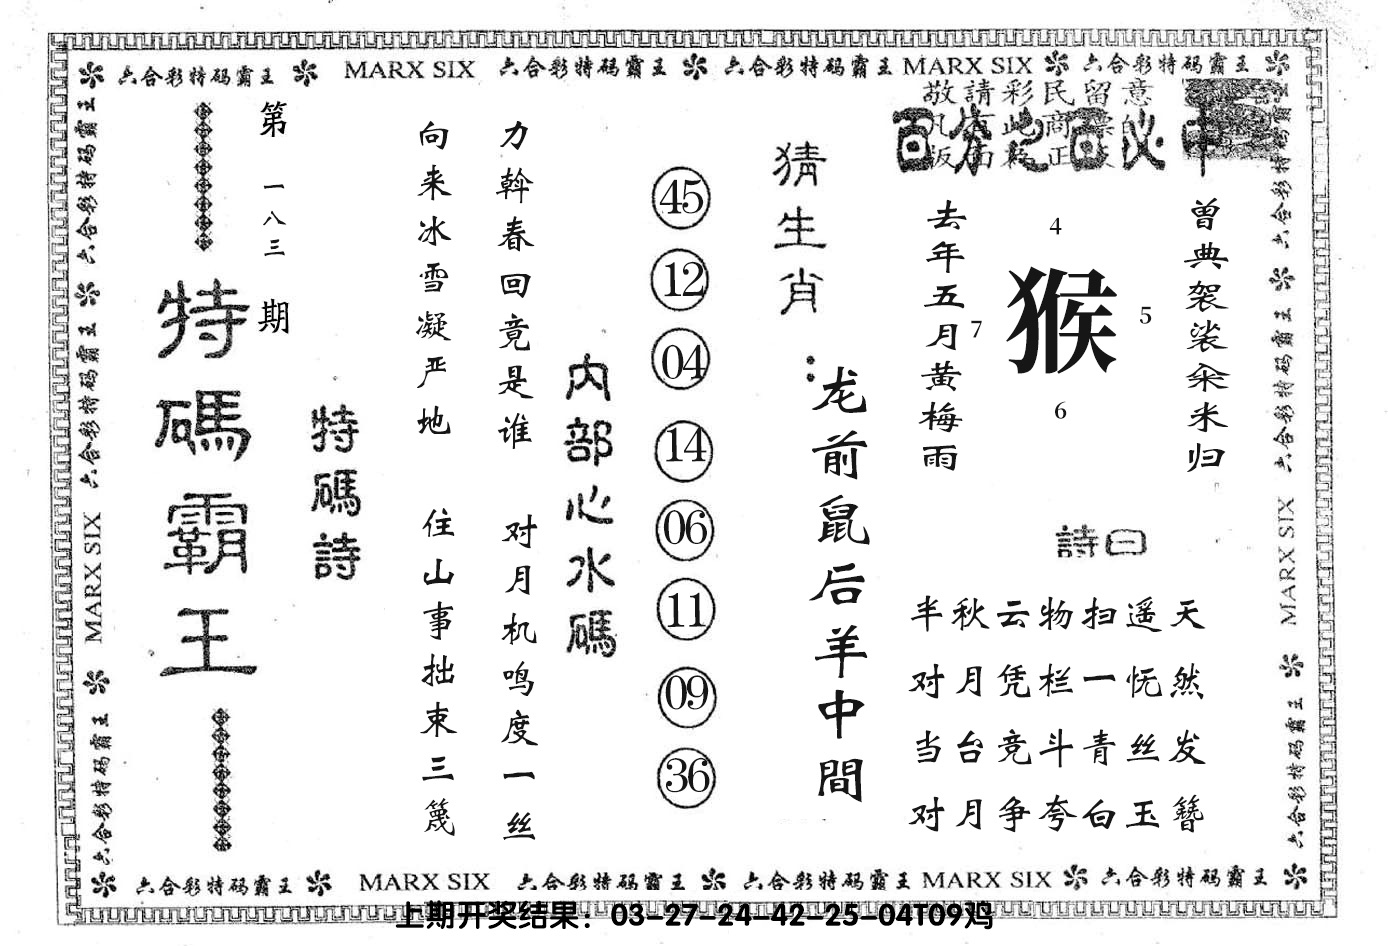 六合彩特码霸王 MARX SIX 六合彩特码霸王 六合彩特码霸王 MARX SIX 六合彩特码霸王
敬請彩民留意
百分之百必中
曾典袈裟籴米归
4
7
猴
5
6
去年五月黄梅雨
詩曰
半秋云物扫遥天
对月凭栏一怃然
当台竞斗青丝发
对月争夸白玉簪
猜生肖：
龙前鼠后羊中間
45
12
04
14
06
11
09
36
内部心水碼
力斡春回竟是谁 对月机鸣度一丝
向来冰雪凝严地 住山事拙束三篾
特碼詩
第一八三期
特碼霸王
六合彩特码霸王 六合彩特码霸王 MARX SIX 六合彩特码霸王
六合彩特码霸王 六合彩特码霸王 MARX SIX 六合彩特码霸王
六合彩特码霸王 MARX SIX 六合彩特码霸王 六合彩特码霸王 MARX SIX 六合彩特码霸王
上期开奖结果：03-27-24-42-25-04T09鸡